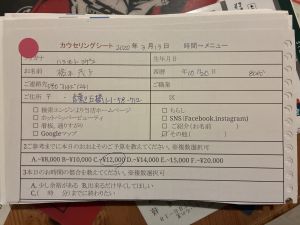 カウセリングシート 2020年3月13日 時間〜メニュー
フリガナ 生年月日
お名前 西暦 年10月30日
ご連絡先 ご職業
ご住所 〒 - 区
□ 検索エンジンより当店ホームページ □ ちらし
□ ホットペッパービューティ □ SNS(Facebook,instagram)
□ 看板、通りすがり □ ご紹介(お名前 )
□ Googleマップ □ その他(
2ご参考までに本日のおおよそのご予算を教えてください。※複数選択可
A.~¥8,000 B~¥10,000 C.~¥12,000 D.~¥14,000 E.~15,000 F.~¥20,000
3本日のお時間の都合を教えてください。※複数選択可
A.少し余裕がある B.出来るだけ早くしてほしい
C.( 時 分)までに終わりたい